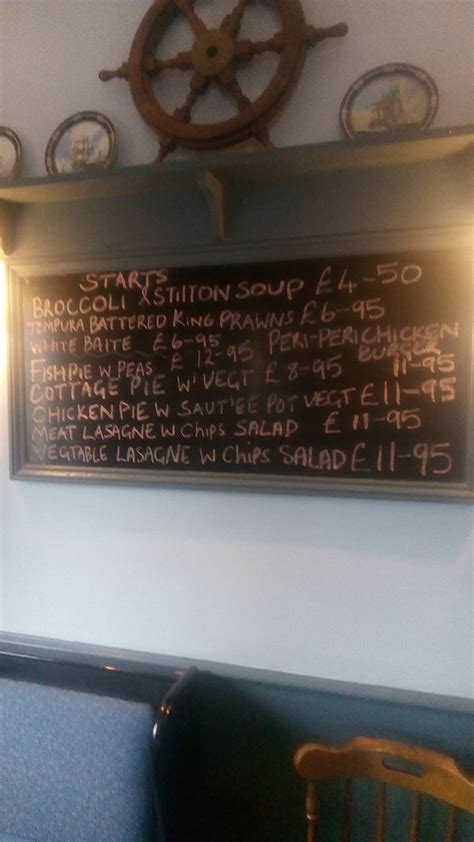 STARTS
BROCCOLI & STILTON SOUP £4-50
TEMPURA BATTERED KING PRAWNS £6-95
WHITE BAITE £6-95 PERI-PERI CHICKEN BURGER 11-95
FISHPIE W PEAS £ 12-95
COTTAGE PIE W' VEGT £ 8-95
CHICKEN PIE W SAUT'EE POT VEGT £11-95
MEAT LASAGNE W CHIPS SALAD £ 11-95
VEGTABLE LASAGNE W CHIPS SALAD £11-95